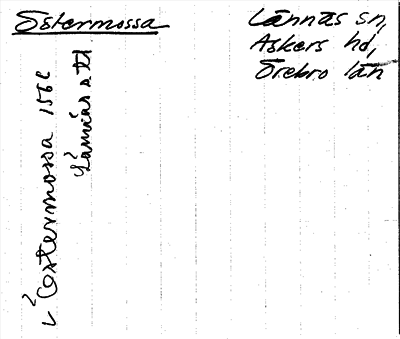 Östermossa
Lännäs sn,
Askers hd,
Örebro län
Östermossa 1562
Lännäs